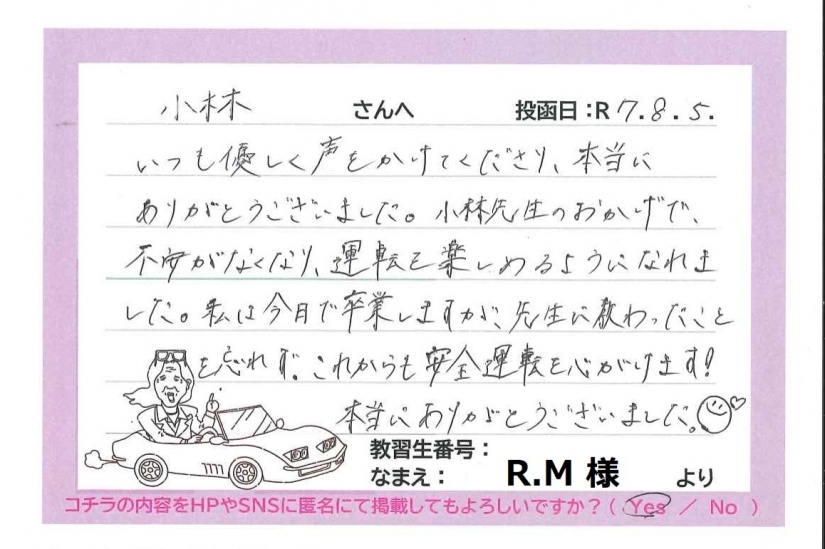 小林 さんへ 投函日:R 7.8.5.
いつも優しく声をかけてくださり、本当に
ありがとうございました。小林先生のおかげで、
不安がなくなり、運転を楽しめるようになれま
した。私は今日で卒業しますが、先生に教わったこと
を忘れず、これからも安全運転を心がけます!
本当にありがとうございました。
教習生番号:
なまえ: R.M 様 より
コチラの内容をHPやSNSに匿名にて掲載してもよろしいですか?( Yes / No )